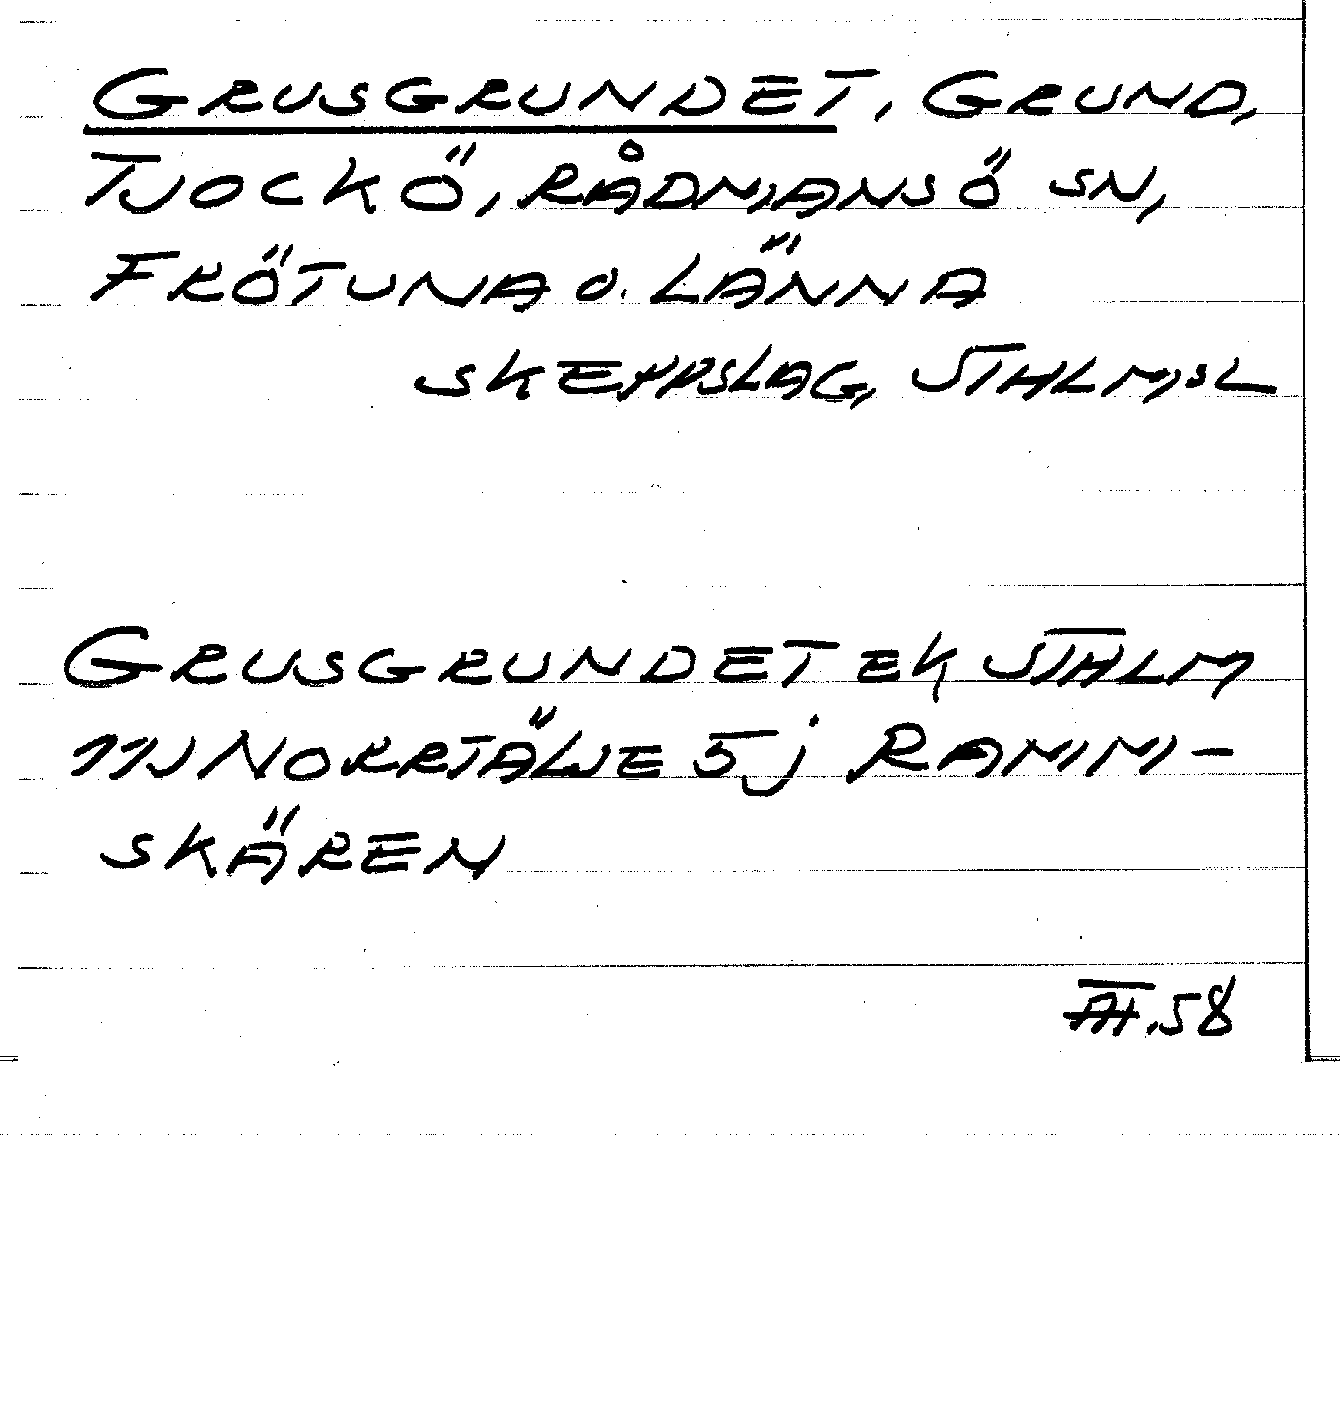 GRUSGRUNDET, GRUND,
TJOCKÖ, RÅDMANSÖ SN,
FRÖTUNA O. LÄNNA
SKEPPSLAG, STHLMSL
GRUSGRUNDET EK STHLM
11J NORRTÄLJE 5j RAMM-
SKÄREN
58